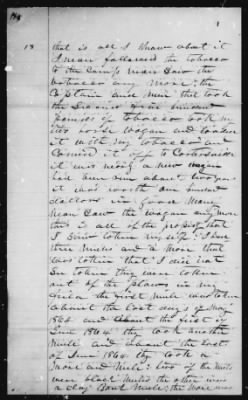 13 that is all I know about it
I never followed the tobacco
to the Camp never saw the
tobacco any more. the
Captain and men that took
the five hundred
pounds of tobacco took my
two horse wagon and loaded
it with my tobacco and
carried it off to
it was a new wagon
had been run about two years
it was worth one hundred
dollars in good money
never saw the wagon any more
this is all of the property that
I saw taken my self. I had
three mules and a mare that
was taken that I did not
see taken they were taken
out of the plows in my
field the first mule was taken
about the last day of May
1864 and about the first of
June 1864 they took another
mule and about the last
of June 1864 they took a
mare and mule: two of the mules
were black mules the other was
a bay mule; the mare was